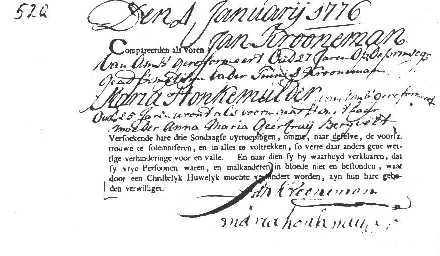 52Q
Den 4 Januarij 1776
Compareerden als voren Jan Krooneman
van Amst gereformeert Oud 27 Jaren Op de
geadsisteert vader Teunis Krooneman
Maria Honkemulder van Amst gereformeert
Oud 25 Jaren woont als voren
moeder Anna Maria Geertruij
Versoekende hare drie Sondaagse uytroepingen, omme, naar deselve, de voorsz.
trouwe te solemniseren, en in alles te voltrekken, so verre daar anders gene wet-
tige verhinderinge voor en valle. En naar dien sy by waarheyd verklaarden, dat
sy vrye Persoonen waren, en malkanderen in bloede niet en bestonden, waar
door een Christelyk Huwelyk mochte verhindert worden, zyn hun hare gebo-
den verwilliget.
Jan Krooneman
maria honkemulder